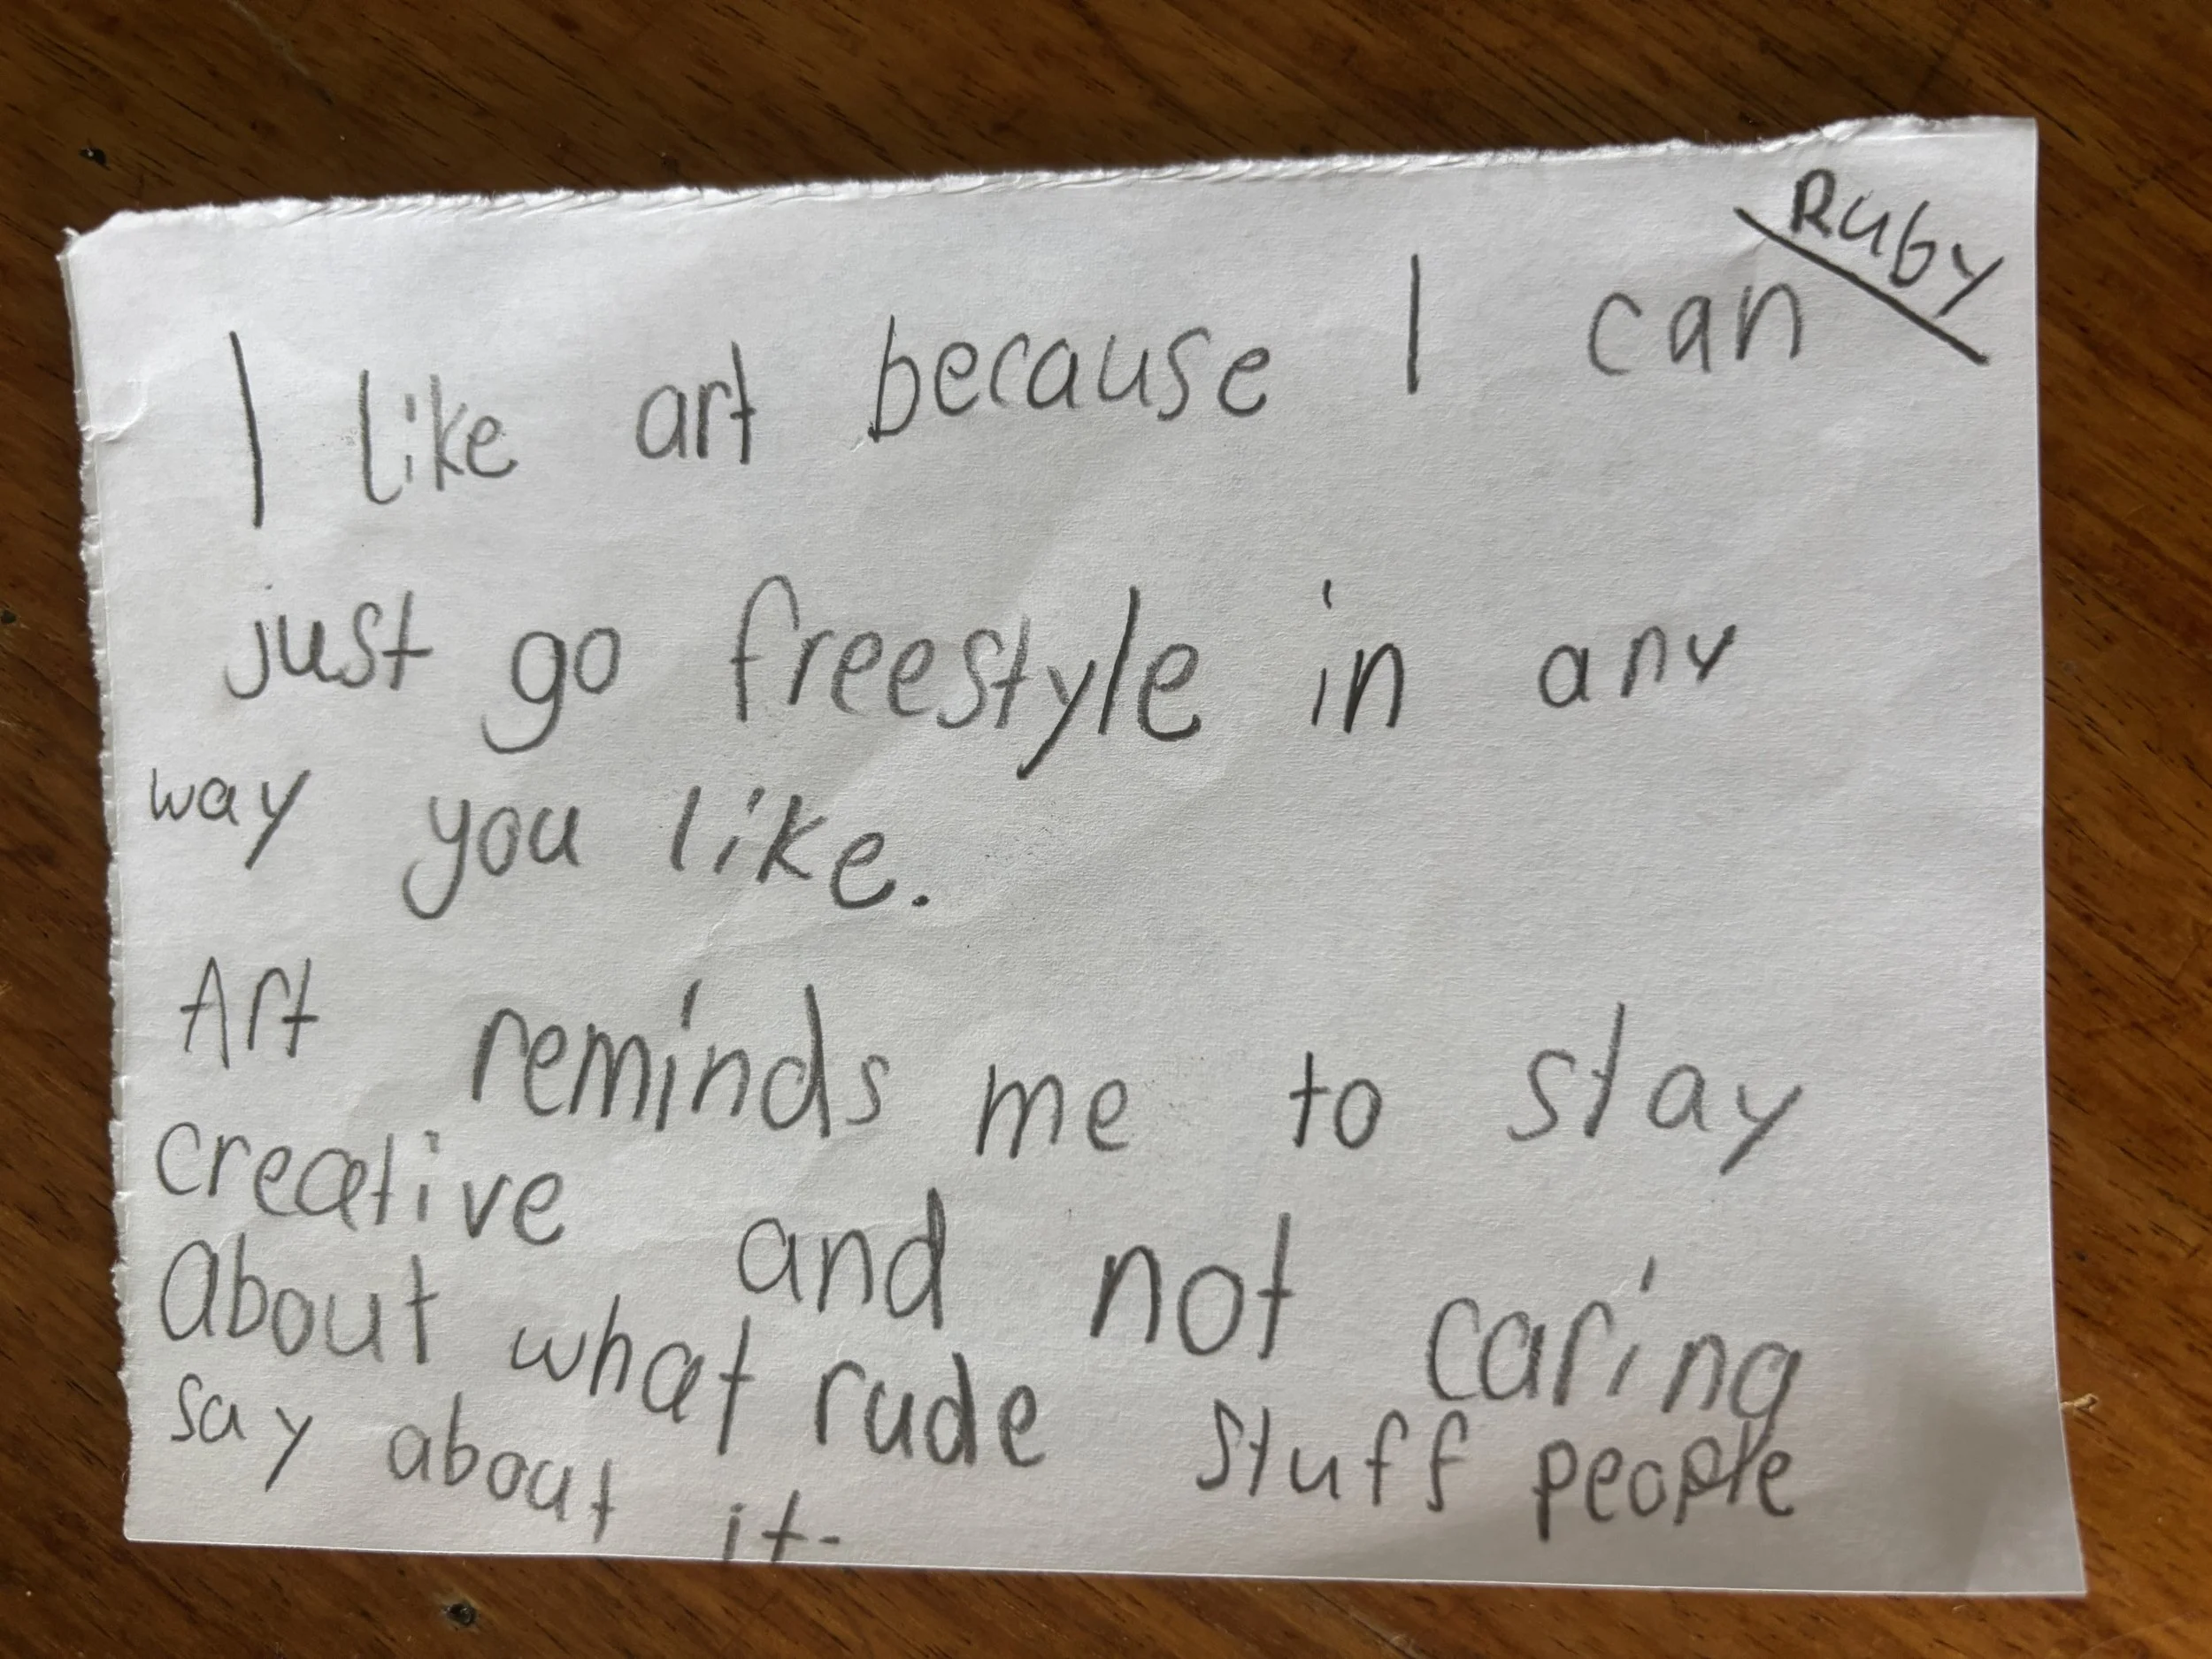 Ruby
I like art because I can
just go freestyle in any
way you like.
Art reminds me to stay
creative and not caring
about what rude stuff people
say about it.